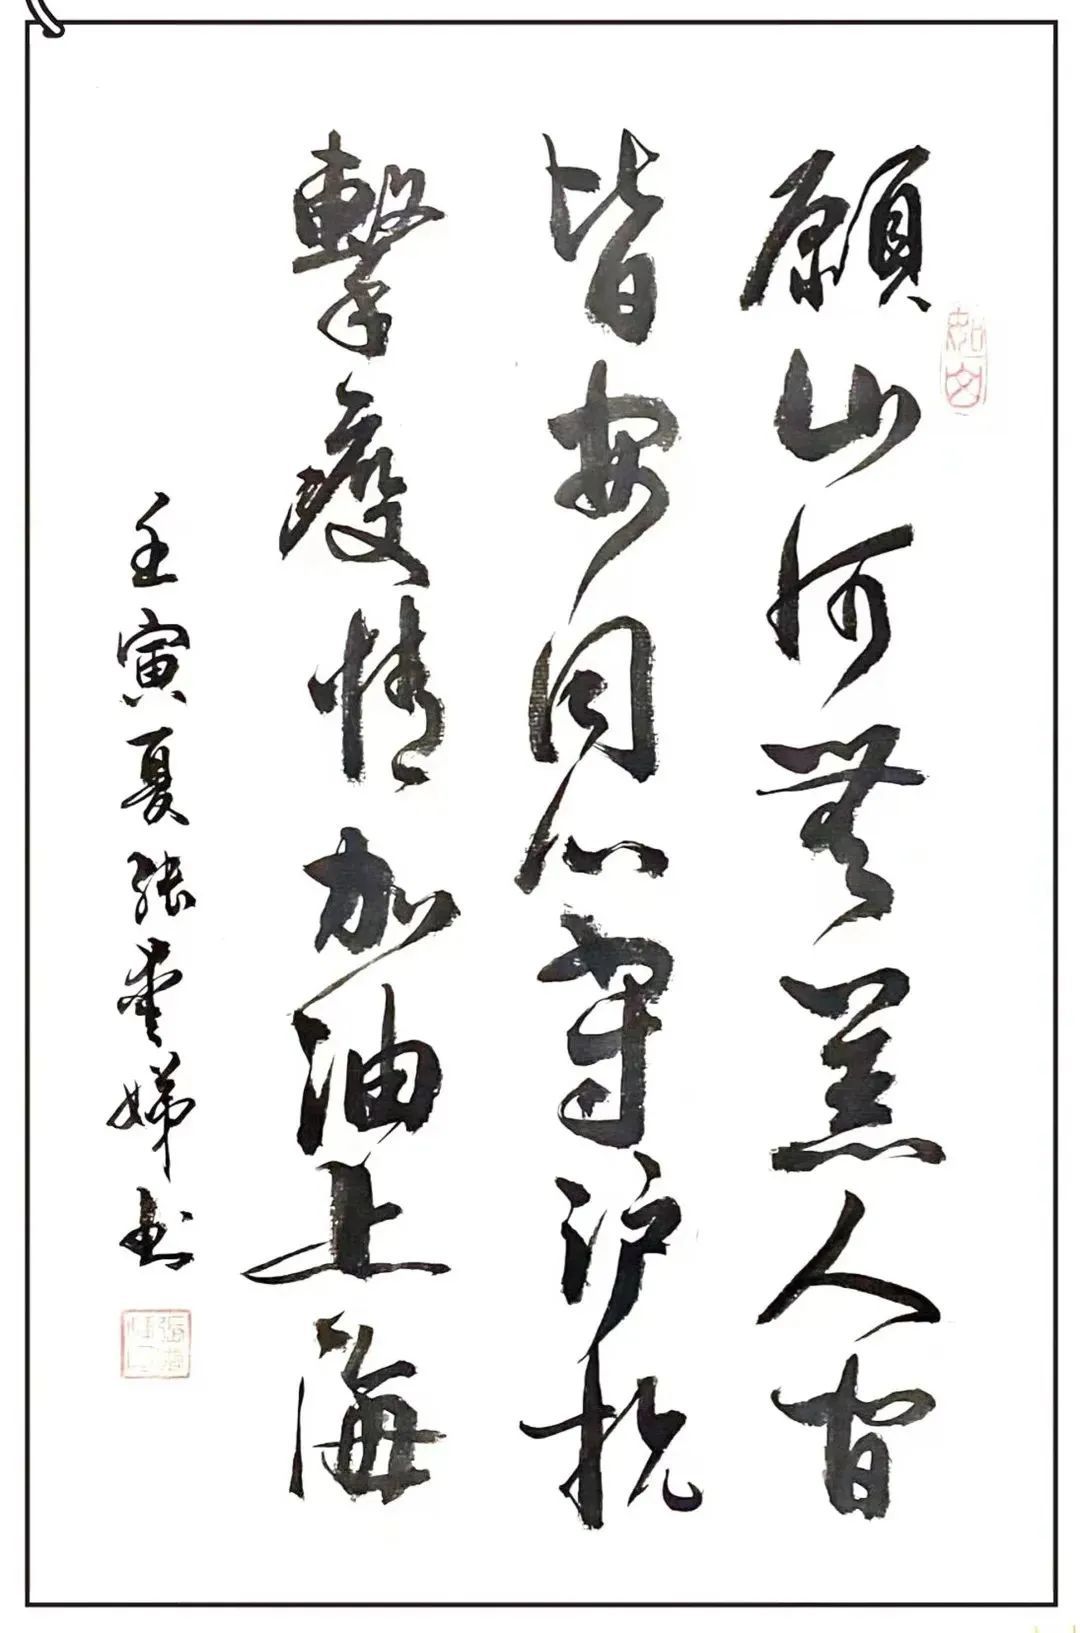 願山河無恙人间
皆安同心守沪抗
擊疫情加油上海
壬寅夏张爱娣书